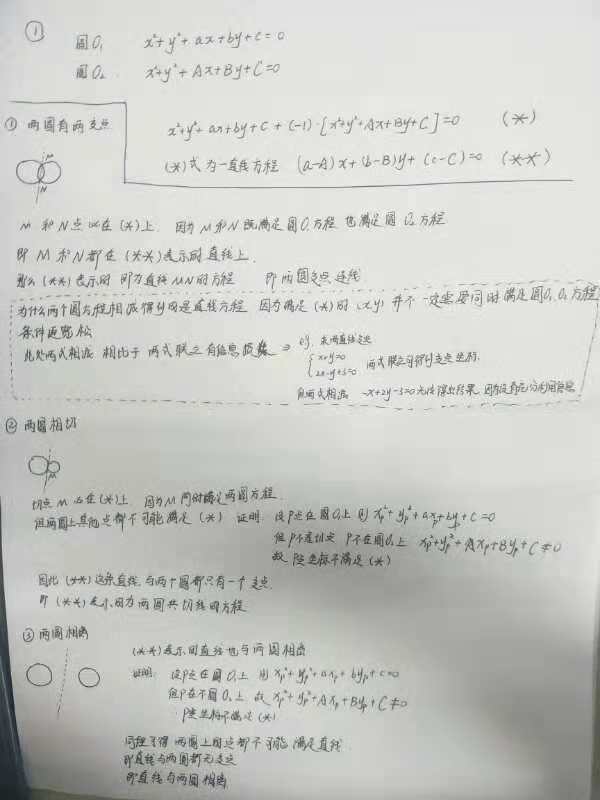 ①
圆O₁ x²+y²+ax+by+c=0
圆O₂ x²+y²+Ax+By+C=0
① 两圆有两交点
x²+y²+ax+by+c+(-1)·[x²+y²+Ax+By+C]=0 (*)
(*)式为一直线方程 (a-A)x+(b-B)y+(c-C)=0 (**)
M
N
M和N点必在(*)上. 因为M和N既满足圆O₁方程 也满足圆O₂方程
即M和N都在(**)表示的直线上.
那么(**)表示的 即为直线MN的方程 即两圆交点连线.
为什么两个圆方程相减得到的是直线方程 因为满足(*)的(x,y)并不一定要同时满足圆O₁O₂方程
条件更宽松
此处两式相减 相比于两式联立有信息 ⇒ eg. 求两直线交点
{x+y=0
2x-y+3=0 两式联立可得到交点坐标.
但两式相减 -x+2y-3=0无法得出结果 因为没有充分利用信息
② 两圆相切
M
切点M必在(*)上. 因为M同时满足两圆方程.
但两圆上其他点都不可能满足(*) 证明: 设P点在圆O₁上 则 xₚ²+yₚ²+axₚ+byₚ+c=0
但P不是切点 P不在圆O₂上 xₚ²+yₚ²+Axₚ+Byₚ+C≠0
故P点坐标不满足(*)
因此(**)这条直线与两个圆都只有一个交点.
即(**)表示的为两圆共切线的方程.
③ 两圆相离
(**)表示的直线也与两圆相离
证明: 设P点在圆O₁上 则 xₚ²+yₚ²+axₚ+byₚ+c=0
但P在不圆O₂上 故 xₚ²+yₚ²+Axₚ+Byₚ+C≠0
P点坐标不满足(*)
同理可得 两圆上的点都不可能满足直线.
即直线与两圆都无交点
即直线与两圆相离.